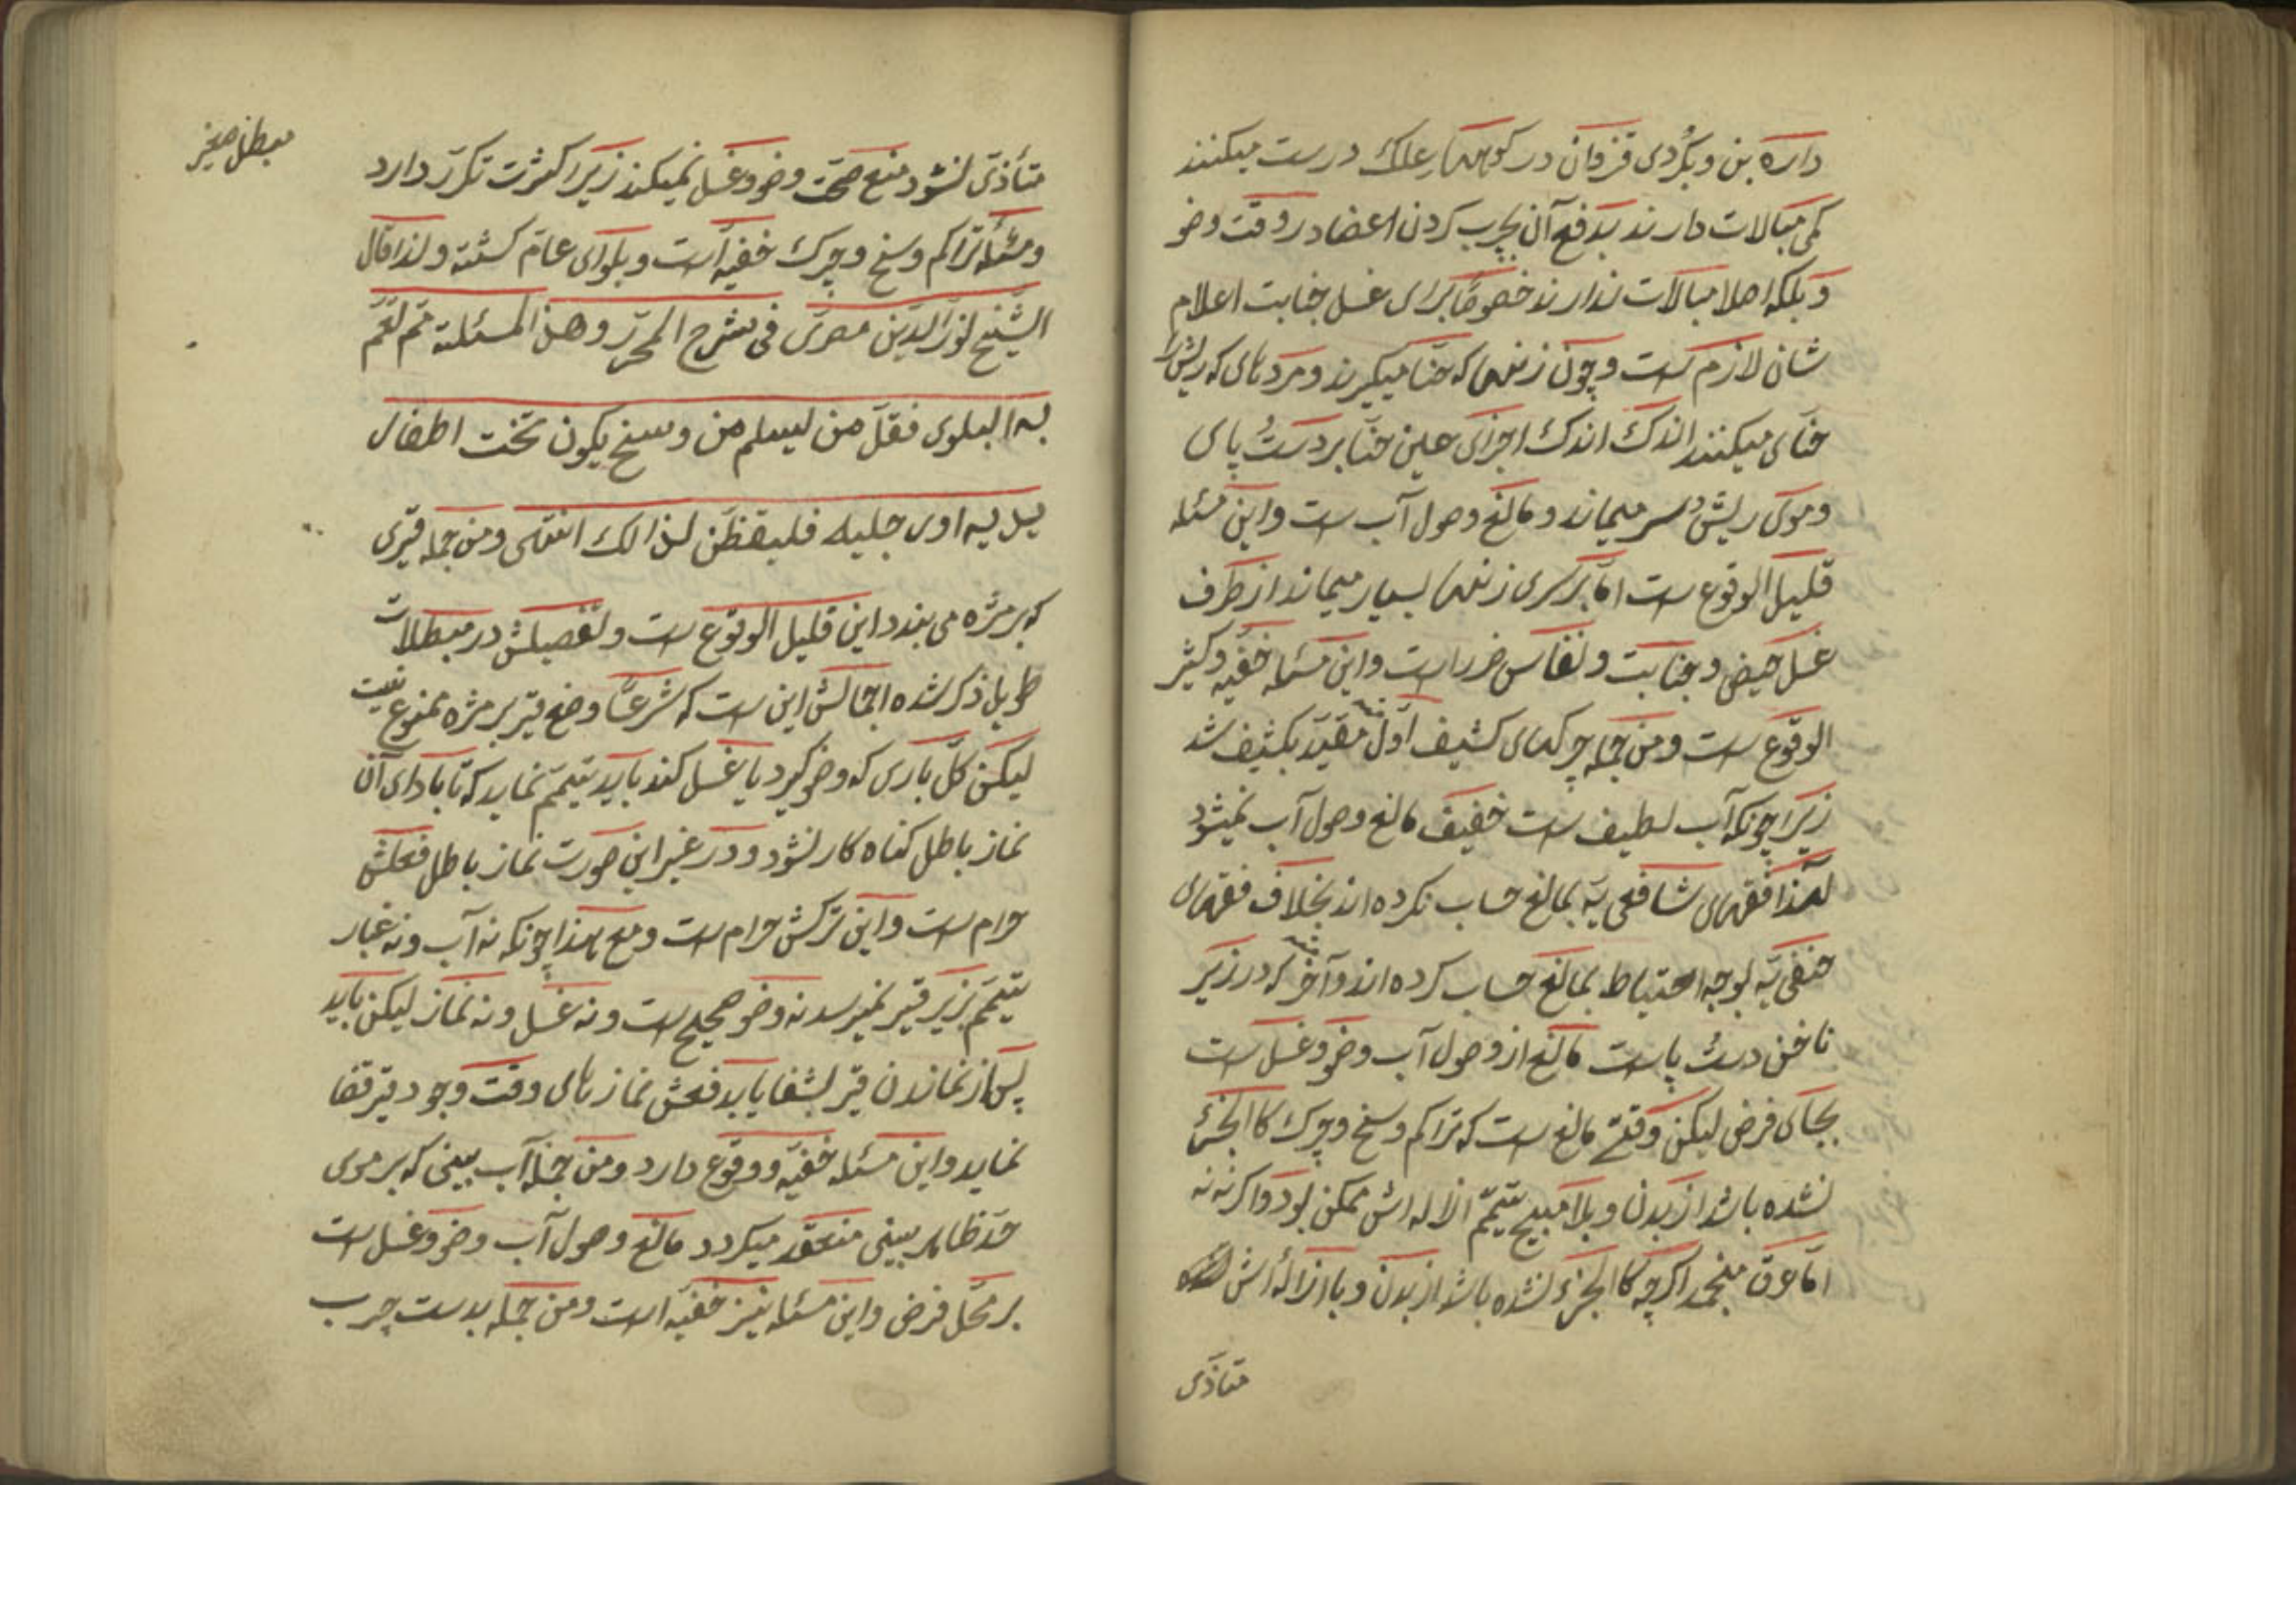 داره بن و بکُردی قزوان در کوهها علک درست میکنند
کمی مبالات دارند بدفع آن بچرب کردن اعضا در وقت وضو
و بلکه اصلا مبالات ندارند خصوصًا برای غسل جنابت اعلام
شان لازم است و چون زنها که حنّا میکیرند و مردهای که ریش را
حنّای میکنند اندک اندک اجزای عین حنّا بر دست پای
و موی ریش و سر میماند و مانع وصول آب است و این مسئله
قلیل الوقوع است امّا بر سری زنها بسیار میماند از طرف
غسل حیض و جنابت و نفاس ضرر است و این مسئله خفیّه و کثیر
الوقوع است و من جمله چرکهای کثیف اوّل مقیّد بکثیف شد
زیرا چونکه آب لطیف است خفیف مانع وصول آب نمیشود
لهذا فقهای شافعی یّه بمانع حساب نکرده اند بخلاف فقهای
حنفی یّه بوجه احتیاط بمانع حساب کرده اند و آخر که در زیر
ناخن دست پاست مانع از وصول آب وضو و غسل است
بجای فرض لیکن وقتی مانع است که تراکم وسخ و چرک کا الجزء
نشده باشد از بدن و بلا مبیح تیمّم ازاله اش ممکن بود و اکر نه نه
امّا عرق منجمد اکرچه کا الجزء نشده باشد از بدن و با ازاله اش
متاذّی
متأذّی نشود منع صحّت وضو و غسل نمیکند زیرا کثرت تکرّر دارد
و مسئله تراکم وسخ و چرک خفیّه است و بلوای عامّ کشته و لذا قال
الشّیخ نورالدّین مصری فی شرح المحرّر و هذه المسئلة ممّ تعمّ
به البلوی فقلّ من یسلم من وسخ یکون تحت اظفار
یدیه اوی جلیه فلیتفظّن لذالک انتهی و من جمله قیری
که بر مژه می بندد این قلیل الوقوع است و تفصیلش در مبطلات
طویل ذکر شده اجمالش این است که شرعًا وضع قیر بر مژه ممنوع نیست
لیکن کلّ باری که وضو کیرد یا غسل کند باید تیمّم نماید که تا بادای آن
نماز باطل کناه کار نشود و در غیر این صورت نماز باطل فعلش
حرام است و این ترکش حرام است و مع هذا چونکه نه آب و نه غبار
تیمّم بزیر قیر نمیرسد نه وضو صحیح است و نه غسل و نه نماز لیکن باید
پس از نماندن قیر بشفا یابد فحش نمازهای وقت وجود قیر قضا
نماید و این مسئله خفیّه و وقوع دارد و من جمله آب بینی که بر موی
حدّ ظاهر بینی منعقد میکردد مانع وصول آب وضو و غسل است
بر محّل فرض و این مسئله نیز خفیّه است و من جمله بدست چرب